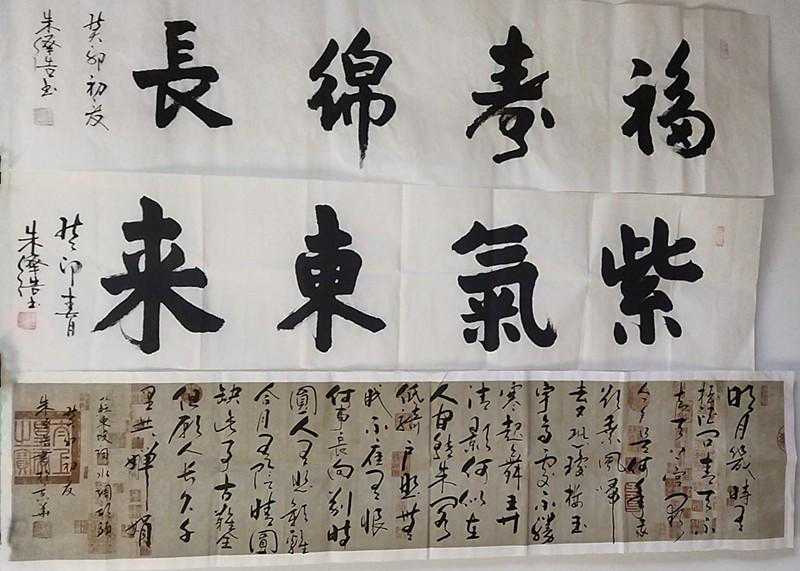 福寿綿長
癸卯初夏
紫氣東来
癸卯春月
明月幾時有
把酒问青天不
知天上宫阙
今夕是何年我
欲乘風歸
去又恐瓊樓玉
宇高處不勝
寒起舞弄
清影何似在
人间转朱阁
低綺户照無
眠不應有恨
何事長向别時
圓人有悲歡離
合月有陰晴圓
缺此事古難全
但願人長久千
里共嬋娟
蘇東坡詞水调歌頭
癸卯初夏